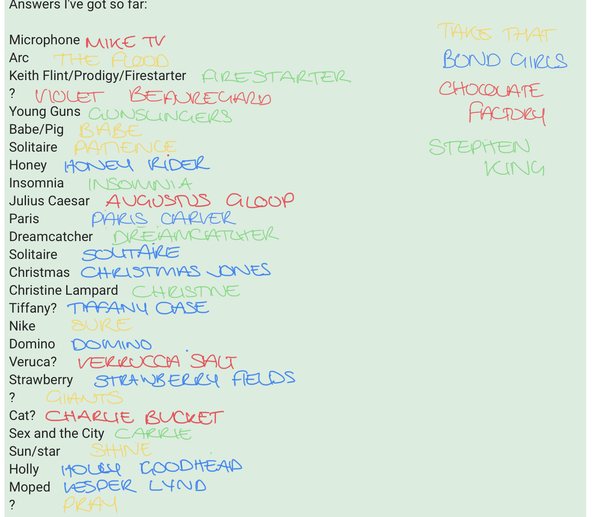 Answers I've got so far:
Microphone MIKE TV
Arc THE FLOOD
Keith Flint/Prodigy/Firestarter FIRESTARTER
? VIOLET BEAUREGARD
Young Guns GUNSLINGERS
Babe/Pig BABE
Solitaire PATIENCE
Honey HONEY RIDER
Insomnia INSOMNIA
Julius Caesar AUGUSTUS GLOOP
Paris PARIS CARVER
Dreamcatcher DREAMCATCHER
Solitaire SOLITAIRE
Christmas CHRISTMAS JONES
Christine Lampard CHRISTINE
Tiffany? TIFFANY CASE
Nike SURE
Domino DOMINO
Veruca? VERRUCCA SALT
Strawberry STRAWBERRY FIELDS
? GIANTS
Cat? CHARLIE BUCKET
Sex and the City CARRIE
Sun/star SHINE
Holly HOLLY GOODHEAD
Moped VESPER LYND
? PRAY
TAKE THAT
BOND GIRLS
CHOCOLATE
FACTORY
STEPHEN
KING